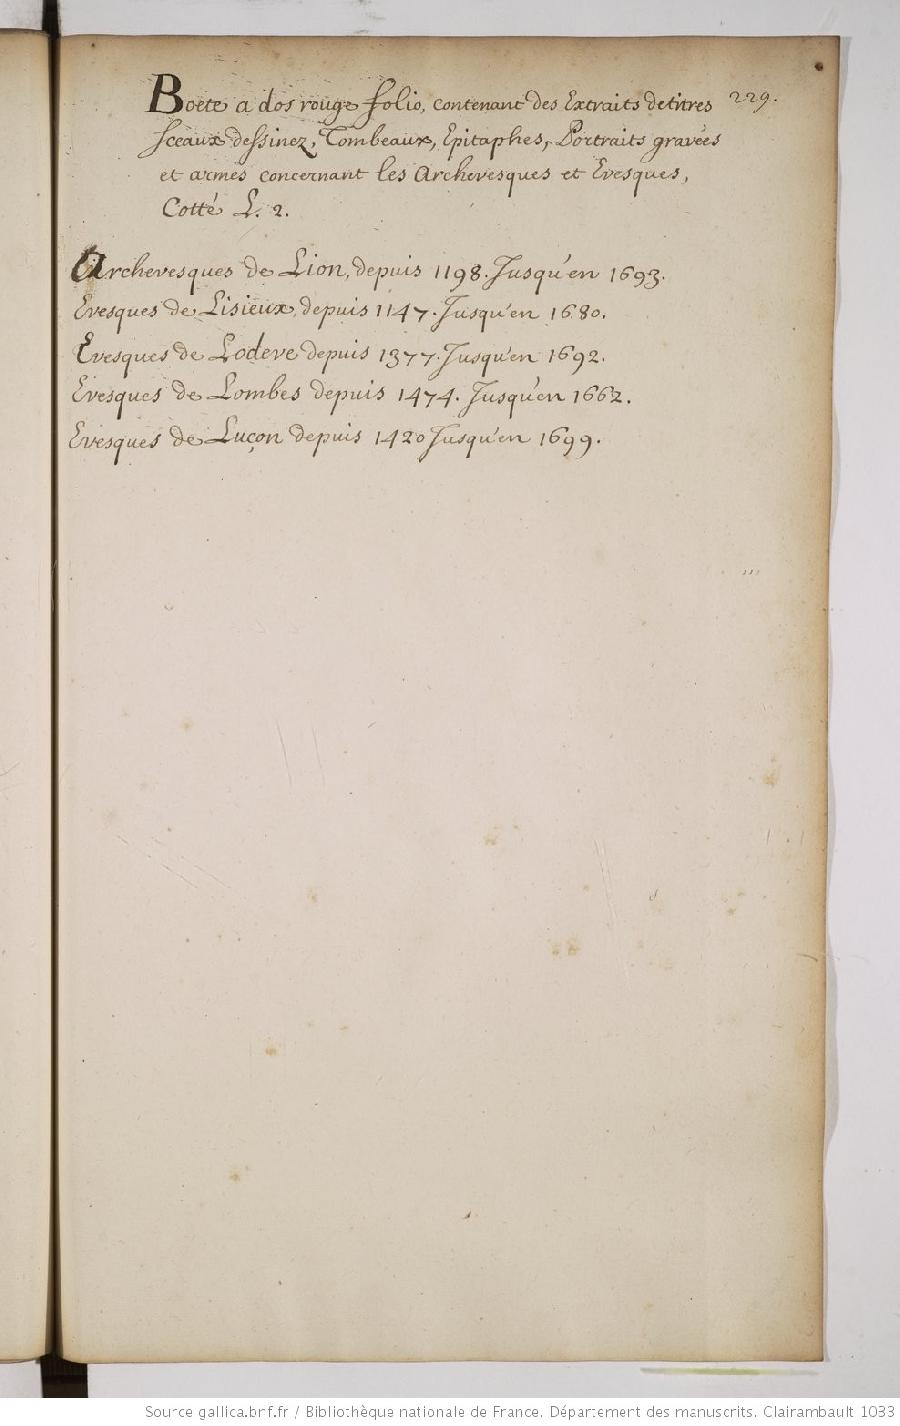 229.
Boete a dos rouge folio, contenant des Extraits de titres
Sceaux dessinez, Tombeaux, Epitaphes, Portraits gravées
et armes concernant les Archevesques et Evesques,
Cotté L. 2.
Archevesques de Lion, depuis 1198. Jusqu'en 1693.
Evesques de Lisieux, depuis 1147. Jusqu'en 1680.
Evesques de Lodeve depuis 1377. Jusqu'en 1692.
Evesques de Lombes depuis 1474. Jusqu'en 1662.
Evesques de Luçon depuis 1420 Jusqu'en 1699.
Source gallica.bnf.fr / Bibliothèque nationale de France. Département des manuscrits. Clairambault 1033